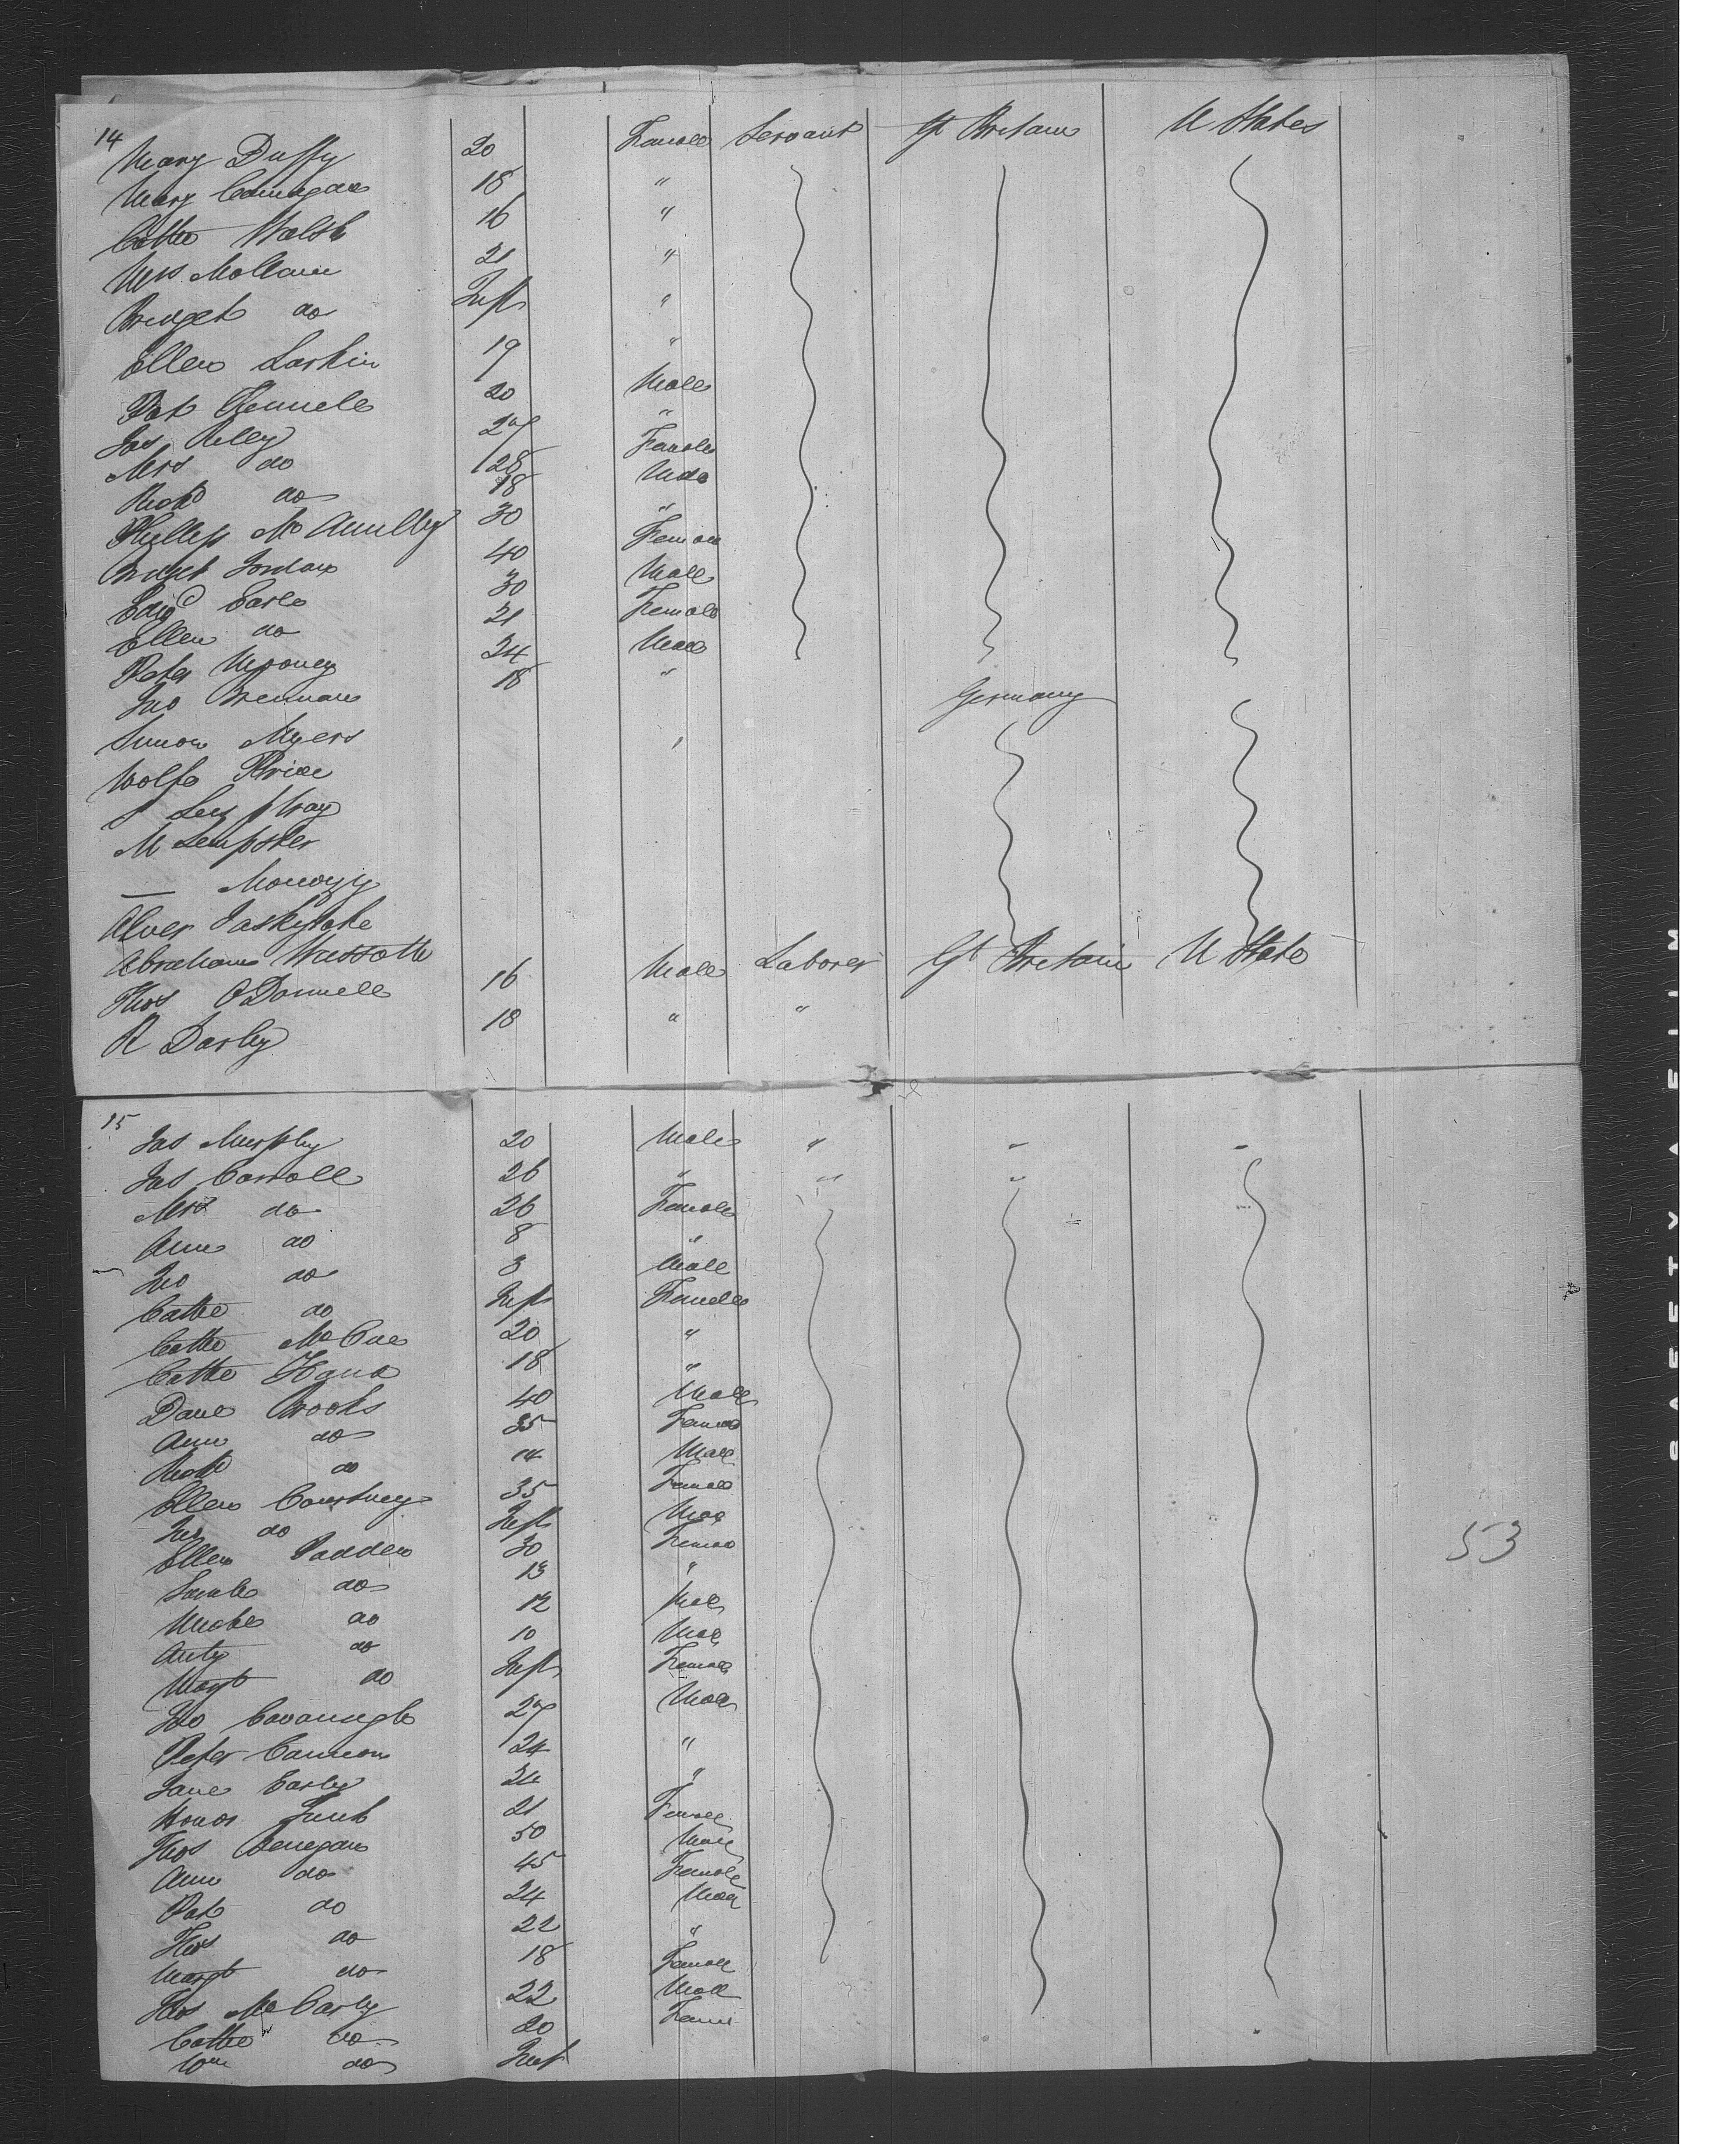 14
Mary Duffy 20 Female Servant Gt Britain U States
Mary 18 "
Cathe Walsh 16 "
Mrs 21 "
Bridget do Inft "
Ellen Larkin 19 "
Pat 20 Male
Jas Relly 27 "
Mrs do 28 Female
Richd do 18 Male
Phillip Mc 30 "
Bridget Jordan 40 Female
Edwd Earle 30 Male
Ellen do 21 Female
Peter Mooney 24 Male
Jno Brennan 18 "
Simon Myers " Germany
Wolfe Price
M Sempster
Abraham
Thos O Donnell 16 Male Laborer Gt Britain U State
R Darley 18 " "
15
Jas Murphy 20 Male " " "
Jas Carroll 26 " " "
Mrs do 26 Female
Ann do 8 "
Jno do 3 Male
Cathe do Inft Female
Cathe Mc Cue 20 "
Cathe 18 "
Danl Brooks 40 Male
Ann do 35 Female
Richd do 14 Male
Ellen Courtney 35 Female
do Inft Male
Ellen Padden 30 Female
Sarah do 13 "
Michl do 12 Male
Anty do 10 Male
Margt do Inft Female
Jno Cavanagh 27 Male
Peter Cannon 24 "
Jane Early 24 "
Honor 21 Female
Thos Renegan 50 Male
Ann do 45 Female
Pat do 24 Male
Thos do 22 "
Margt do 18 Female
Thos Mc Carly 22 Male
Cathe do 20 Fem
Wm do Inft
53
SAFETY FILM